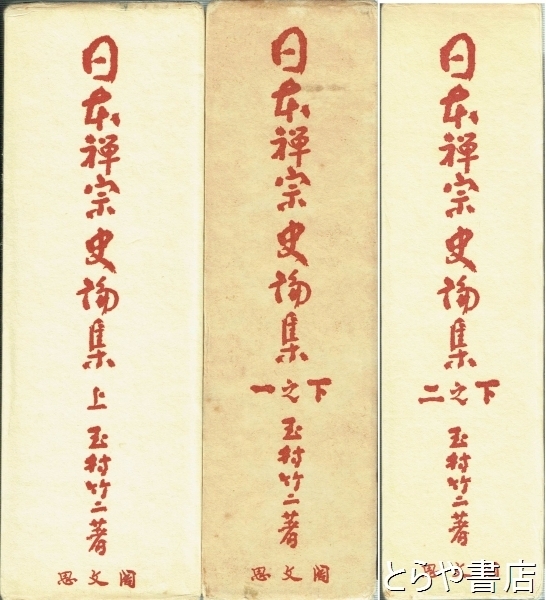 日本禅宗史論集
上
玉村竹二著
思文閣
日本禅宗史論集
下之一
玉村竹二著
思文閣
日本禅宗史論集
下之二
玉村竹二著
思文閣
とらや書店